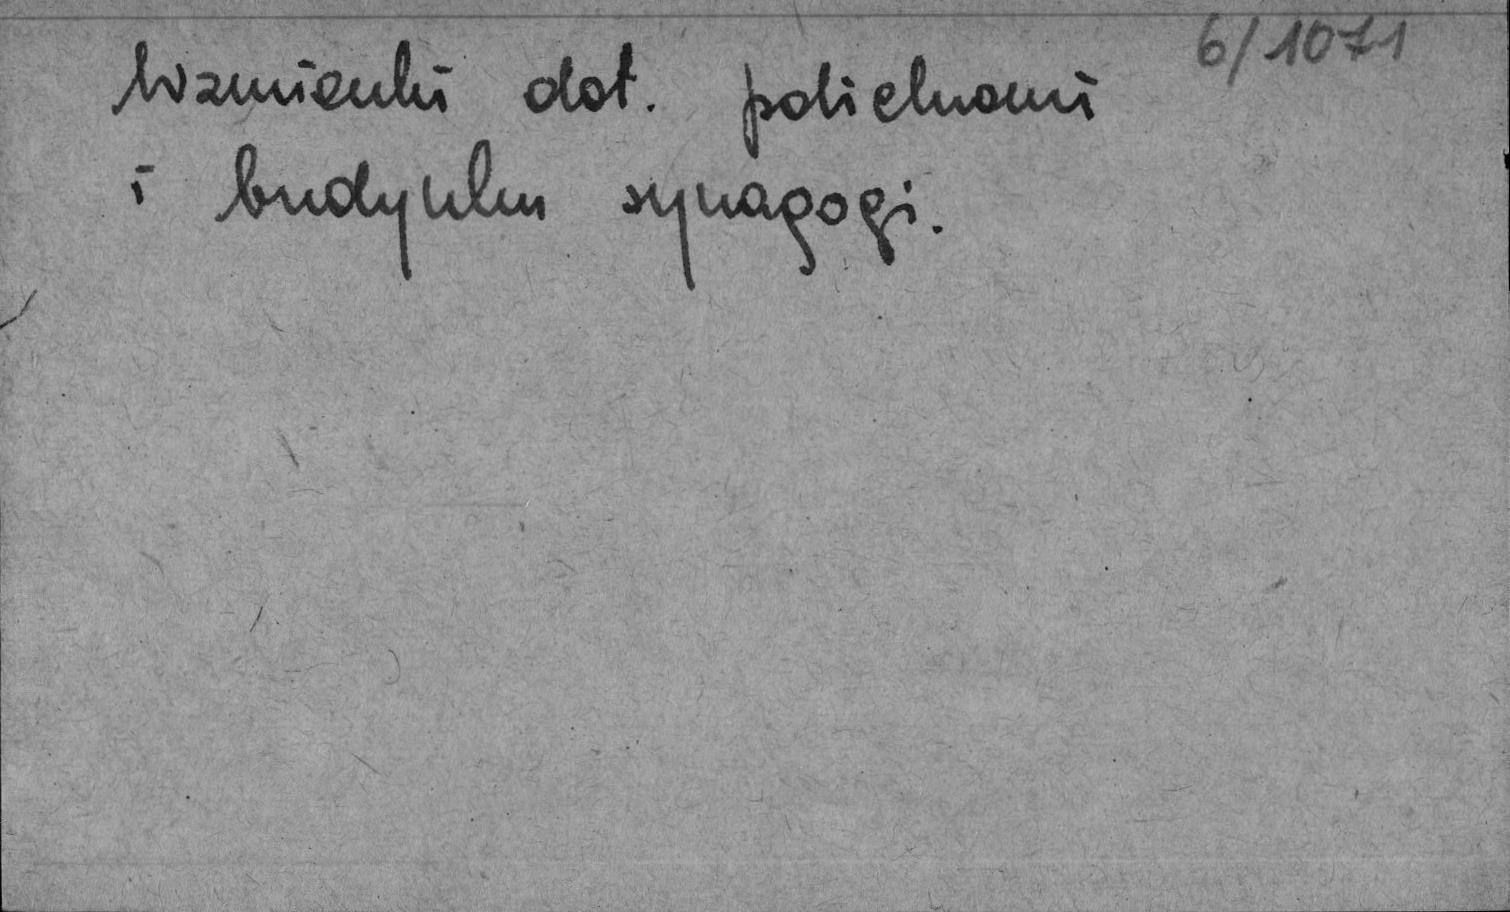 6/1071
Wzmianki dot. polichromii
i budynku synagogi.